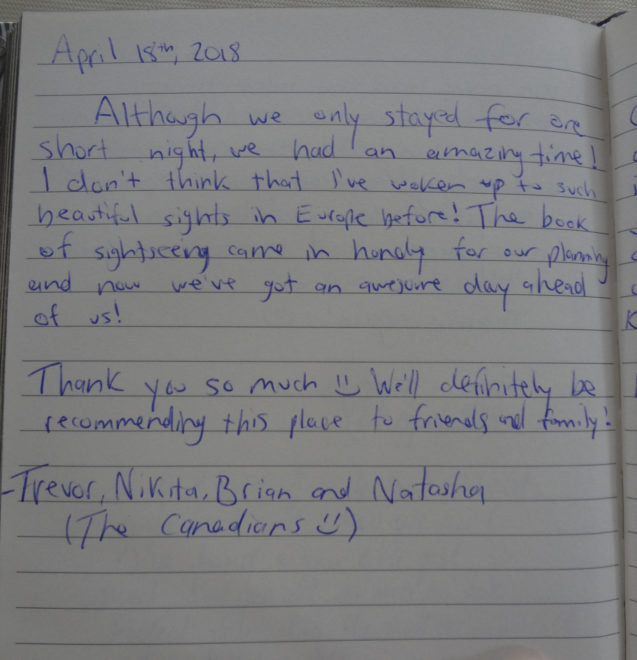 April 18th, 2018
Although we only stayed for one
short night, we had an amazing time!
I don't think that I've woken up to such
beautiful sights in Europe before! The book
of sightseeing came in handy for our planning
and now we've got an awesome day ahead
of us!
Thank you so much :) We'll definitely be
recommending this place to friends and family!
-Trevor, Nikita, Brian and Natasha
(The Canadians :))